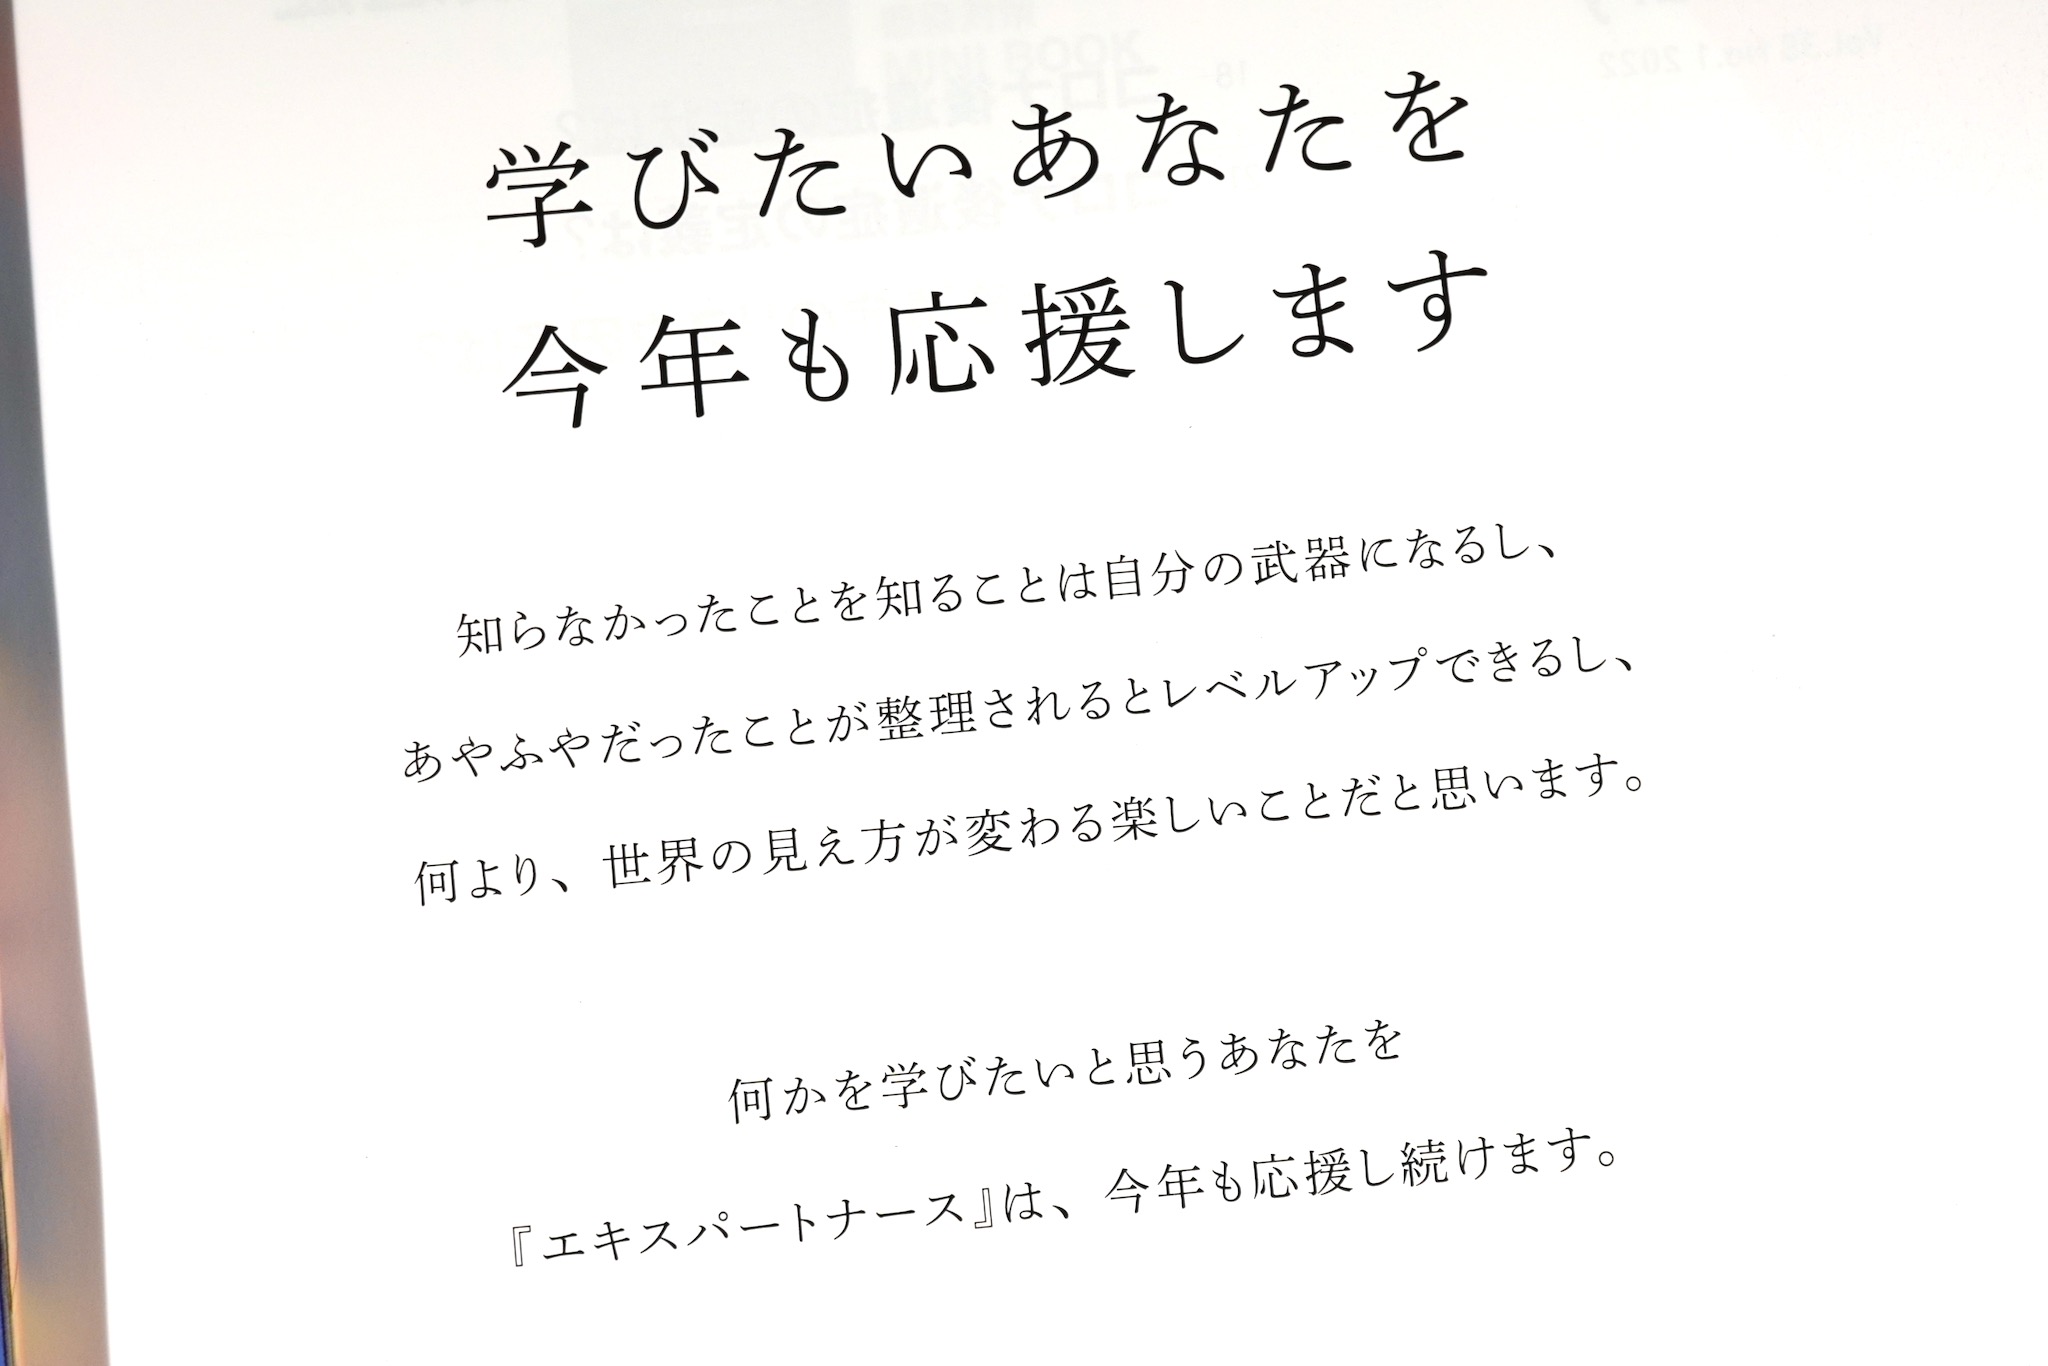 学びたいあなたを
今年も応援します
知らなかったことを知ることは自分の武器になるし、
あやふやだったことが整理されるとレベルアップできるし、
何より、世界の見え方が変わる楽しいことだと思います。
何かを学びたいと思うあなたを
『エキスパートナース』は、今年も応援し続けます。